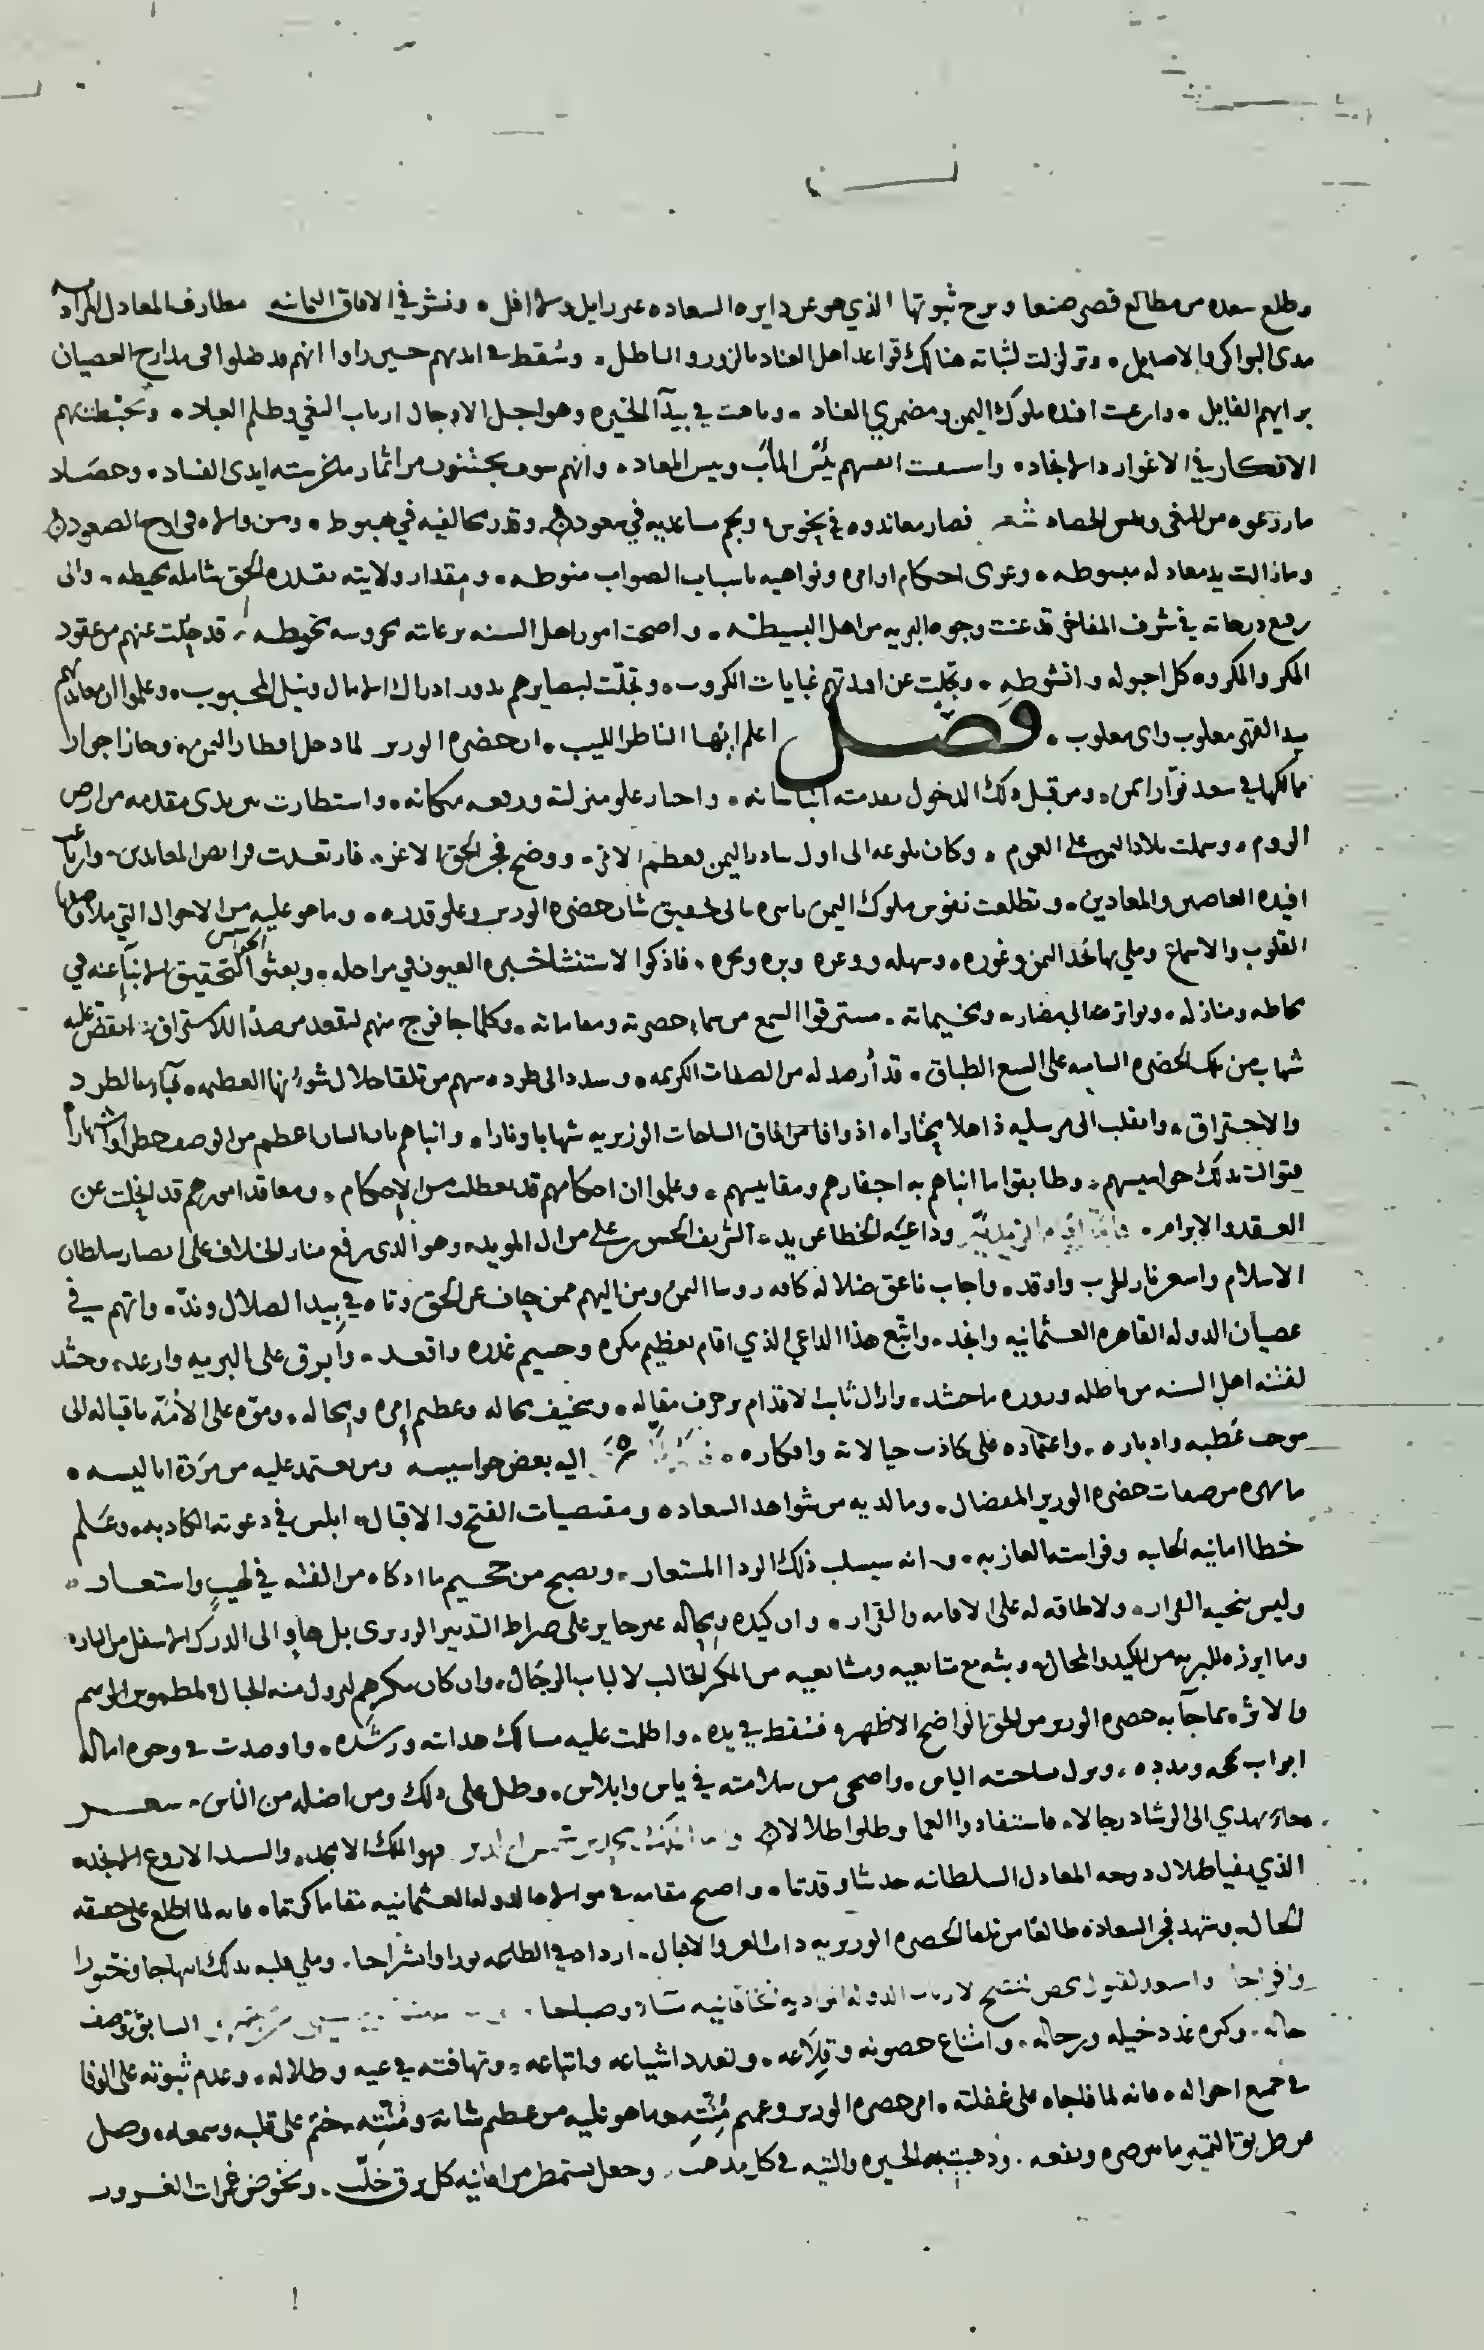 وطلع سعده من مطالع قصر صنعا وبرج ثبوتها الذي هو عن دايره السعاده غير زايل ولا افل ونشر في الافاق اليمانيه مطارف المعادل
مدى البواكر والاصايل وتزلزلت لثباته هنالك قواعد اهل العناد بالزور والباطل وسُقط في ايديهم حين راوا انهم قد ضلوا في مدارج العصيان
برايهم الفايل وارعبت افئده ملوك اليمن ومضمري العناد وتاهت في بيدآ الحيره وهواجل الاوجال ارباب البغي وظلم العباد وتخبطت بهم
الافكار في الاغوار والانجاد انفسهم بئس المآب وبيس المعاد وانهم سوف يجتنون من اثمار ما غرسته ايدى الفساد وحصاد
ما زرعوه من البغي وبئس الحصاد شعر فصار معانده في نحوس ونجم مساعديه في سعود وقدر مخالفيه في هبوط ومن والاه في اوج الصعود
وما زالت يد معادله مبسوطه وعرى احكام اوامره ونواهيه باسباب الصواب منوطه ومقدار ولايته بقدره الحق شامله محيطه والى
رفيع درجاته في شرف المفاخر قد عنت وجوه البريه من اهل البسيطه واصبحت امور اهل السنه برعايته محروسه محوطه قد حلّت عنهم من عقود
المكر والمكروه كل احبوله وانشوطه وتجلت عن افئدتهم غيابات الكروب وتجلّت لبصايرهم بدور ادراك الامال ونيل المحبوب وعلموا ان معانديهم
بيد القهر مغلوب واى مغلوب فصل اعلم ايها الناظر اللبيب ان حضره الوزير لما دخل اقطار اليمن وحاز احواز
ممالكها في سعد نوّار ايمن ومن قبل ذلك الدخول تقدمته انباء شانه واخبار علو منزلته ورفعه مكانه واستطارت بين يدى مقدمه من ارض
الروم وشملت بلاد اليمن على العموم وكان بلوغه الى اول بنادر اليمن ووضح فجر الحق الاغر فارتعدت فرايص المعاندين
افئده العاصين والمعادين وتطلعت نفوس ملوك اليمن باسره الى تحقيق شان حضره الوزير وعلو قدره وما هو عليه من الاحوال التي ملا صيتها
القلوب والاسماع وملي بها نجد اليمن وغوره وسهله ووعره وبره وبحره فاذكوا لاستنشا خبره العيون في مراحله وبعثوا الجواسيس لتحقيق الانبآ عنه في
محاطه ومنازله وتواتر معالي مضاربه ومخيماته مسترقوا السمع من سماء حضرته ومقاماته وكلما جا فوج منهم ليقعد مرصدًا للاستراق انقض عليه
شهاب من تلك الحضره الساميه على السبع الطباق قد أرصد له من الصفات الكريمه وسدد الى طرده سهم من تلقا جلال شؤنها العظيمه بالطرد
والاحتراق وانقلب الى مرسليه ذاهلا محتارا اذ وافا من افاق الساحات الوزيريه شهابا ونارا وانباهم بان الشان اعظم من الوصف خطرا واشتهارا
فتوالت بذلك جواسيسهم وطابقوا ما انباهم به اجفارهم ومقاييسهم وعلموا ان احكامهم قد تعطلت من الاحكام ومعاقد امورهم قد انحلت عن
العقد والابرام وداعيه الخطا عن يد الشريف الحسن بن علي من ال المويد وهو الذى رفع منار الخلاف على انصار سلطان
الاسلام واسعر نار الحرب واوقد واجاب ناعق ضلاله كافه روسا اليمن ومن اليهم ممن حاف عن الحق وتاه في بيدا الضلال وندّ واتهم في
عصيان الدوله القاهره العثمانيه وانجد واتبع هذا الداعي الذي اقام بعظيم مكره وجسيم غدره واقعد وابرق على البريه وارعد وحشد
لفتنه اهل السنه من باطله وزوره ما حشد وازال ثابت الاقدام بزخرف مقاله وسخيف محاله وعظيم إمره وإمحاله وموّه على الامّه باقباله الى
موجب عَطَبِه وادباره واعتماده على كاذب خيالاته وافكاره اليه بعض جواسيسه ومن يعتمد عليه من مَرَدة اباليسه
ما بهره من صفات حضره الوزير المفضال وما لديه من شواهد السعاده ومقتضيات الفتح والاقبال ابلس في دعوته الكاذبه وعَلم
خطا امانيه الخايبه وفراسته العازبه وانه سيسلب ذلك الردا المستعار ويصبح من جحيم ما اذكاه من الفتنه في لهيبٍ واستعار
وليس ينجيه الفرار ولا طاقه له على الاقامه والقرار وان كيده ومحاله غير جايز على صراط التدبير الوزيرى بل هاوٍ الى الدرك الاسفل من النار
وما ابرزه للبريه من الكيد والمحال وبثه مع متابعيه ومشايعيه من المكر الخالب لالباب الرجال وان كان مكرهم لتزول منه الجبال لمطموس الرسم
والاثر بما جآ به حضره الوزير من الحق الواضح الاظهر فسُقط في يده واظلمت عليه مسالك هدايته ورشده واوصدت في وجوه اماله
ابواب ونزل بساحته الباس واضحى من سلامته في ياس وابلاس وظل على ذلك ومن اضله من الناس شعر
يهدي الى الرشاد رجالا فاستفادوا العما وظلوا ضلالا فهو الملك الامجد والسيد الاروع الانجد
الذي تفيا ظلال دوحه المعادل السلطانيه حديثا وقديما واصبح مقامه في موالاه الدوله العثمانيه مقاما كريما فانه لما اطلع على حقيقه
الحال وشهد فجر السعاده طالعًا من تلقا الحضره الوزيريه ذات العز والاقبال ازداد نورا وانشراحا وملي قلبه بذلك ابتهاجا
وافراحا السابق وصف
حاله وكثره عدد خيله ورجاله وامتناع حصونه وقلاعه وتعدد اشياعه واتباعه وتهافته في غيه وضلاله وعدم ثبوته على الوفا
في جميع احواله فانه لما فاجاه على غفلته امر حضره الوزير وما هو عليه من عظيم شانه خُتم على قلبه وسمعه وضل
عن طريق التمييز ما بين ضره ونفعه وذهبت به الحيره والتيه في كل مذهب وجعل يستمطر من امانيه كل برق خلّب ويخوض غمرات الغرور